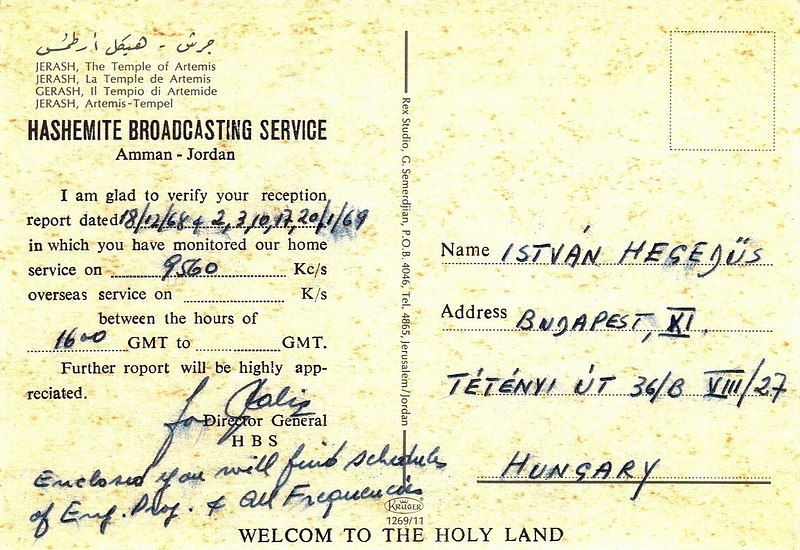 جرش - هيكل أرطمس
JERASH, The Temple of Artemis
JERASH, La Temple de Artemis
GERASH, Il Tempio di Artemide
JERASH, Artemis-Tempel
HASHEMITE BROADCASTING SERVICE
Amman - Jordan
I am glad to verify your reception
report dated 18/12/68 & 2, 3, 10, 17, 20/1/69
in which you have monitored our home
service on 9560 Kc/s
overseas service on K/s
between the hours of
1600 GMT to GMT.
Further roport will be highly app-
reciated.
for
Director General
HBS
Enclosed you will find schedules
of Eng. Prog. & all Frequencies
Rex Studio, G. Semerdjian, P.O.B. 4046, Tel. 4865, Jerusalem/Jordan
KRUGER
1269/11
Name ISTVÁN HEGEDŰS
Address BUDAPEST, XI.
TÉTÉNYI ÚT 36/B VIII/27
HUNGARY
WELCOME TO THE HOLY LAND